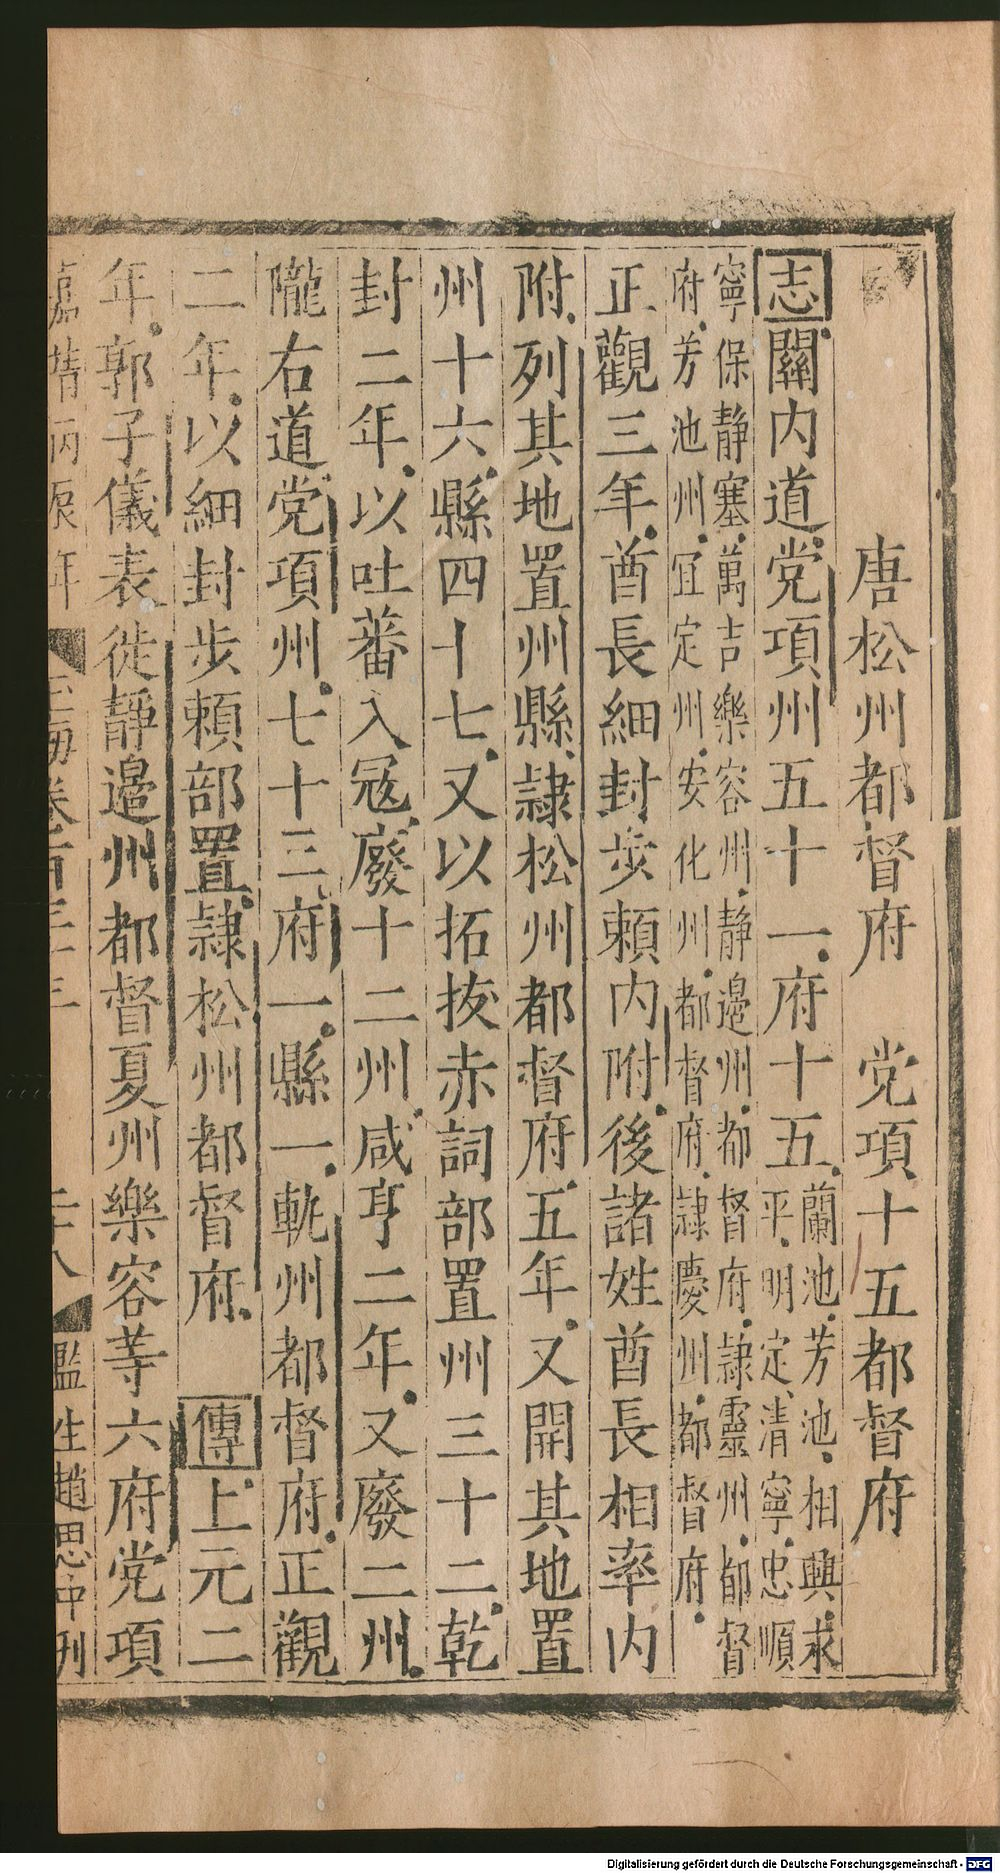 唐松州都督府　党項十五都督府
志關内道党項州五十一府十五蘭池芳池相興求平明定清寧忠順
寧保静塞萬吉樂容州静邊州都督府隷靈州都督府芳池州冝定州安化州都督府隷慶州都督府
正觀三年酋長細封步頼内附後諸姓酋長相率内
附列其地置州縣隷松州都督府五年又開其地置
州十六縣四十七又以拓拔赤詞部置州三十二乾
封二年以吐蕃入冦廢十二州咸亨二年又廢二州
隴右道党項州七十三府一縣一軌州都督府正觀
二年以細封步頼部置隷松州都督府　傳上元二
年郭子儀表徙靜邉州都督夏州樂容等六府党項
嘉靖丙辰年　玉海卷百三十三　二十八　監生趙思中刊
Digitalisierung gefördert durch die Deutsche Forschungsgemeinschaft - DFG